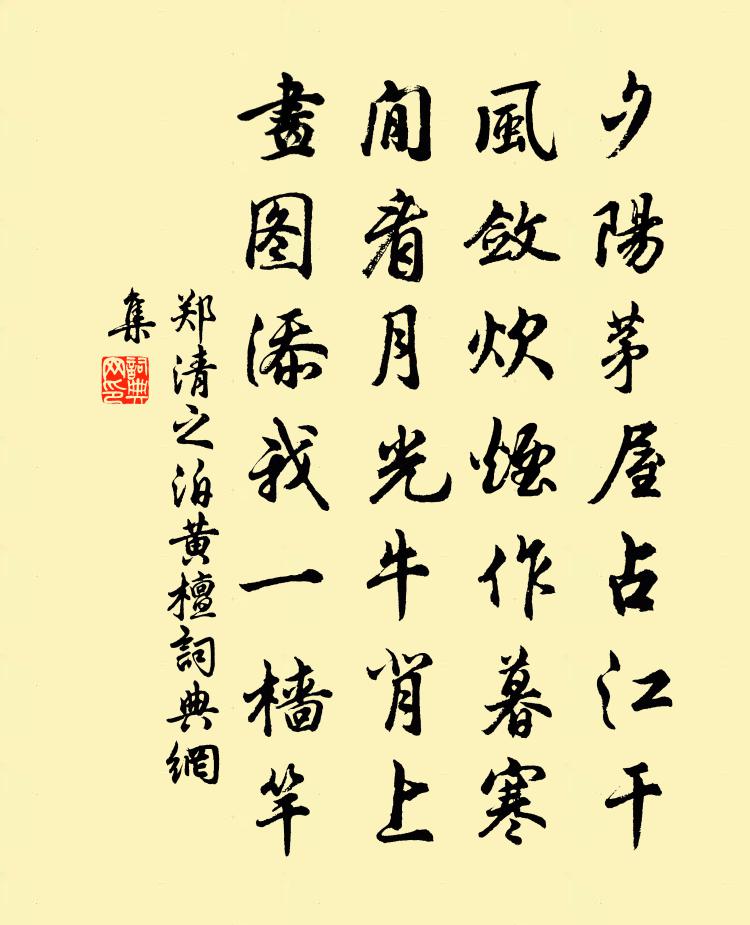 夕陽茅屋占江干
風斂炊煙作暮寒
閒看月光牛背上
畫图添我一檣竿
郑清之泊黄檀詞典網
集
詞典网印